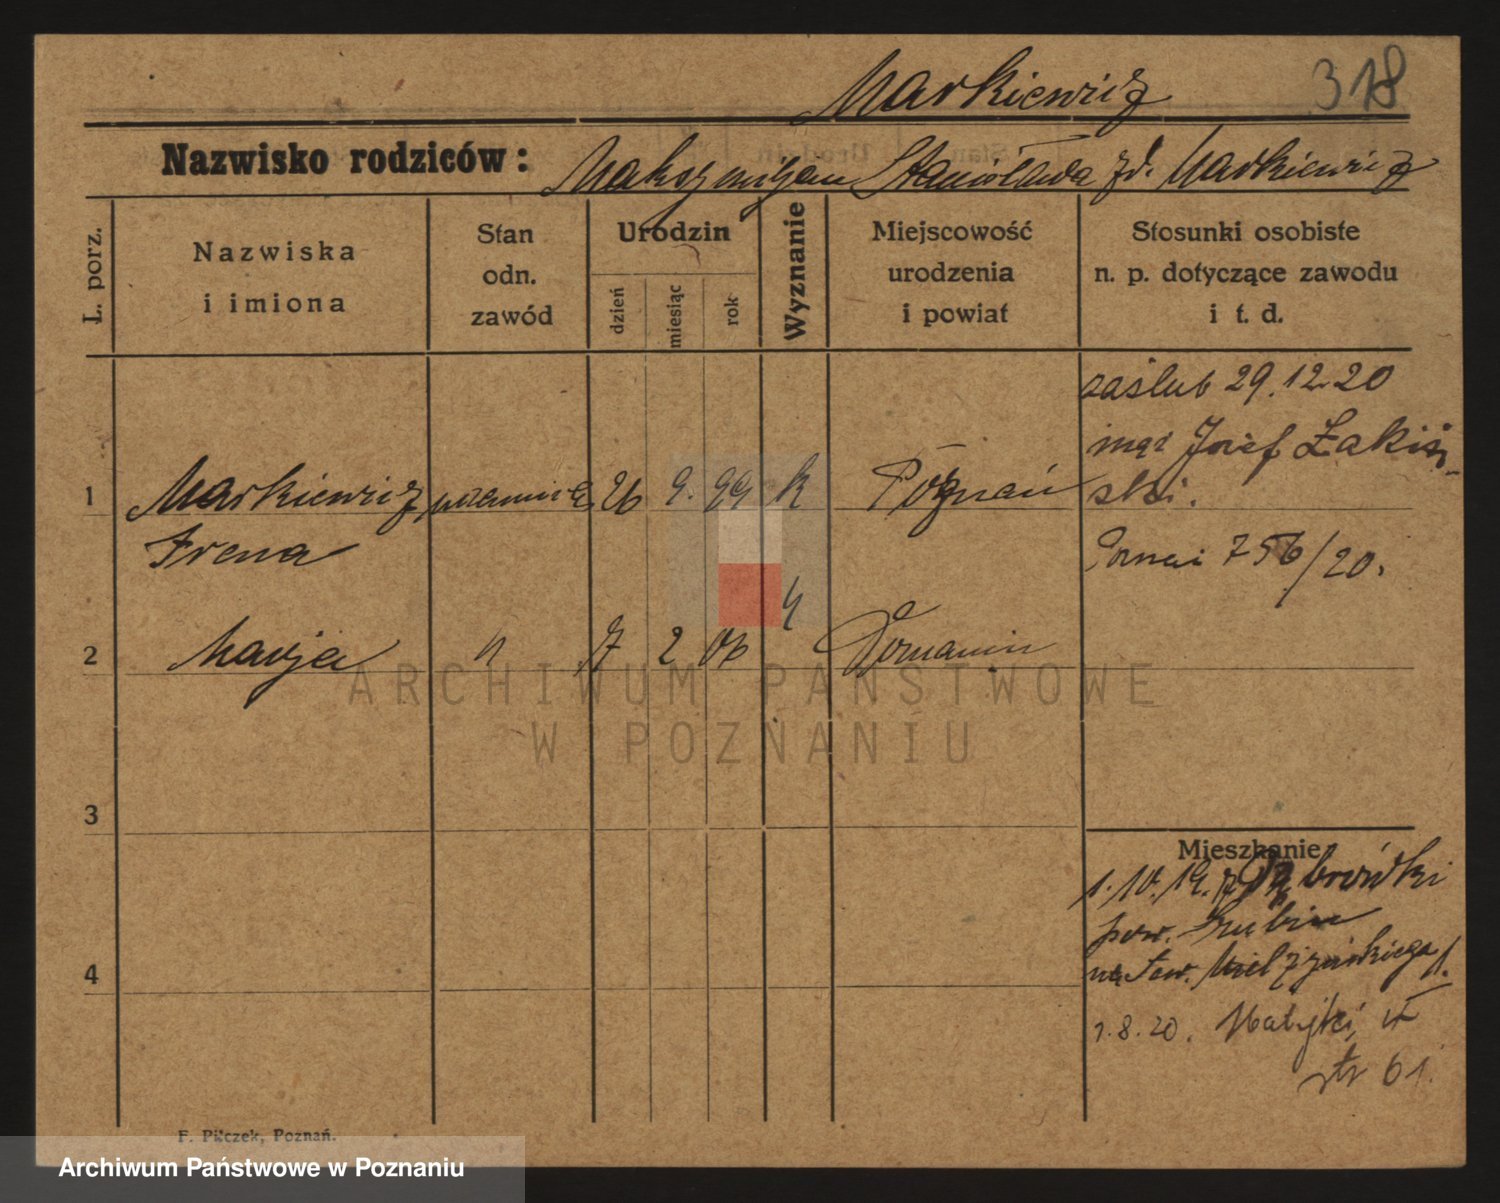 Markiewicz
318
Nazwisko rodziców: Maksymiljan Stanisława zd. Markiewicz
L. porz.
Nazwiska
i imiona
Stan
odn.
zawód
Urodzin
dzień
miesiąc
rok
Wyznanie
Miejscowość
urodzenia
i powiat
Stosunki osobiste
n. p. dotyczące zawodu
i t. d.
zaślub 29.12.20
mąż Józef Żakiń-
ski.
1 Markiewicz 26 9. 99 k Poznań
Irena
756/20.
2 Marja 7 2 06 Domanin
3
4
Mieszkanie
1.10.19. z Dąbrówki
pow.
Mielżyńskiego 1.
1.8.20. Matejki
61.
F. Pilczek, Poznań.
ARCHIWUM PAŃSTWOWE
W POZNANIU
Archiwum Państwowe w Poznaniu